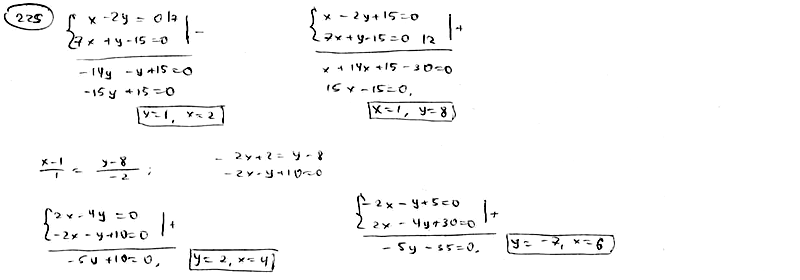 225
x - 2y = 0 |7
7x + y - 15 = 0 | -
-14y - y + 15 = 0
-15y + 15 = 0
y = 1, x = 2
x - 2y + 15 = 0
7x + y - 15 = 0 |2 | +
x + 14x + 15 - 30 = 0
15x - 15 = 0,
x = 1, y = 8
x-1/1 = y-8/-2 ;
-2x + 2 = y - 8
-2x - y + 10 = 0
2x - 4y = 0
-2x - y + 10 = 0 | +
-5y + 10 = 0, y = 2, x = 4
-2x - y + 5 = 0
2x - 4y + 30 = 0 | +
-5y - 35 = 0, y = -7, x = 6